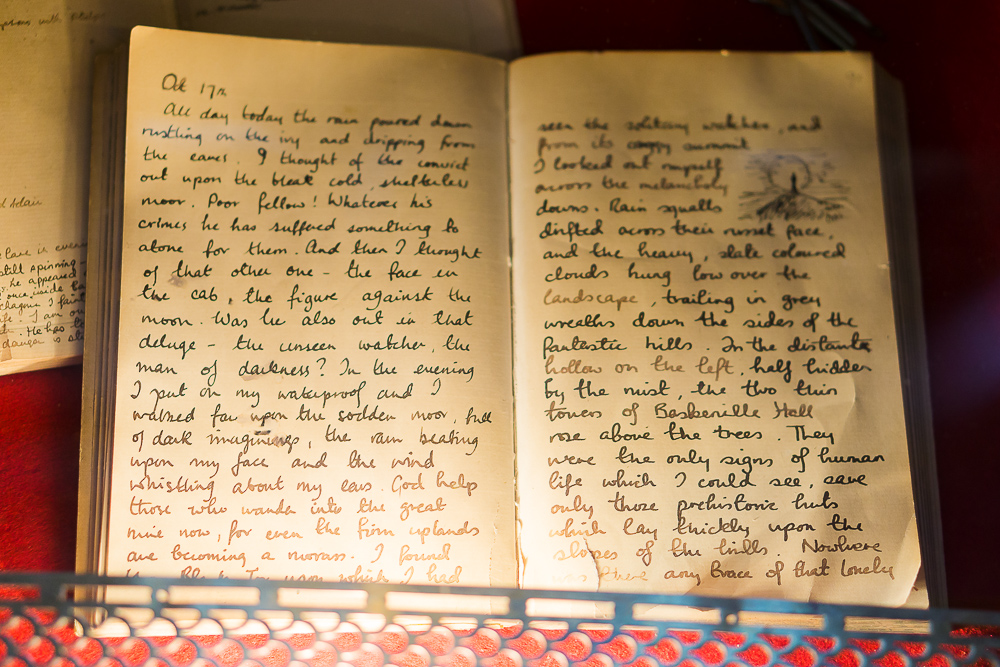 Oct 17th
All day today the rain poured down
rustling on the ivy and dripping from
the eaves. I thought of the convict
out upon the bleak cold, shelterless
moor. Poor fellow! Whatever his
crimes he has suffered something to
atone for them. And then I thought
of that other one - the face in
the cab, the figure against the
moon. Was he also out in that
deluge - the unseen watcher, the
man of darkness? In the evening
I put on my waterproof and I
walked far upon the sodden moor, full
of dark imaginings, the rain beating
upon my face and the wind
whistling about my ears. God help
those who wander into the great
mire now, for even the firm uplands
are becoming a morass. I found
Tor upon which I had
seen the solitary watcher, and
from its craggy summit
I looked out myself
across the melancholy
downs. Rain squalls
drifted across their russet face,
and the heavy, slate coloured
clouds hung low over the
landscape, trailing in grey
wreaths down the sides of the
fantastic hills. In the distant
hollow on the left, half hidden
by the mist, the two thin
towers of Baskerville Hall
rose above the trees. They
were the only signs of human
life which I could see, save
only those prehistoric huts
which lay thickly upon the
slopes of the hills. Nowhere
was there any trace of that lonely
Adair
still spinning
he appeared
once inside
I am
He has
danger is